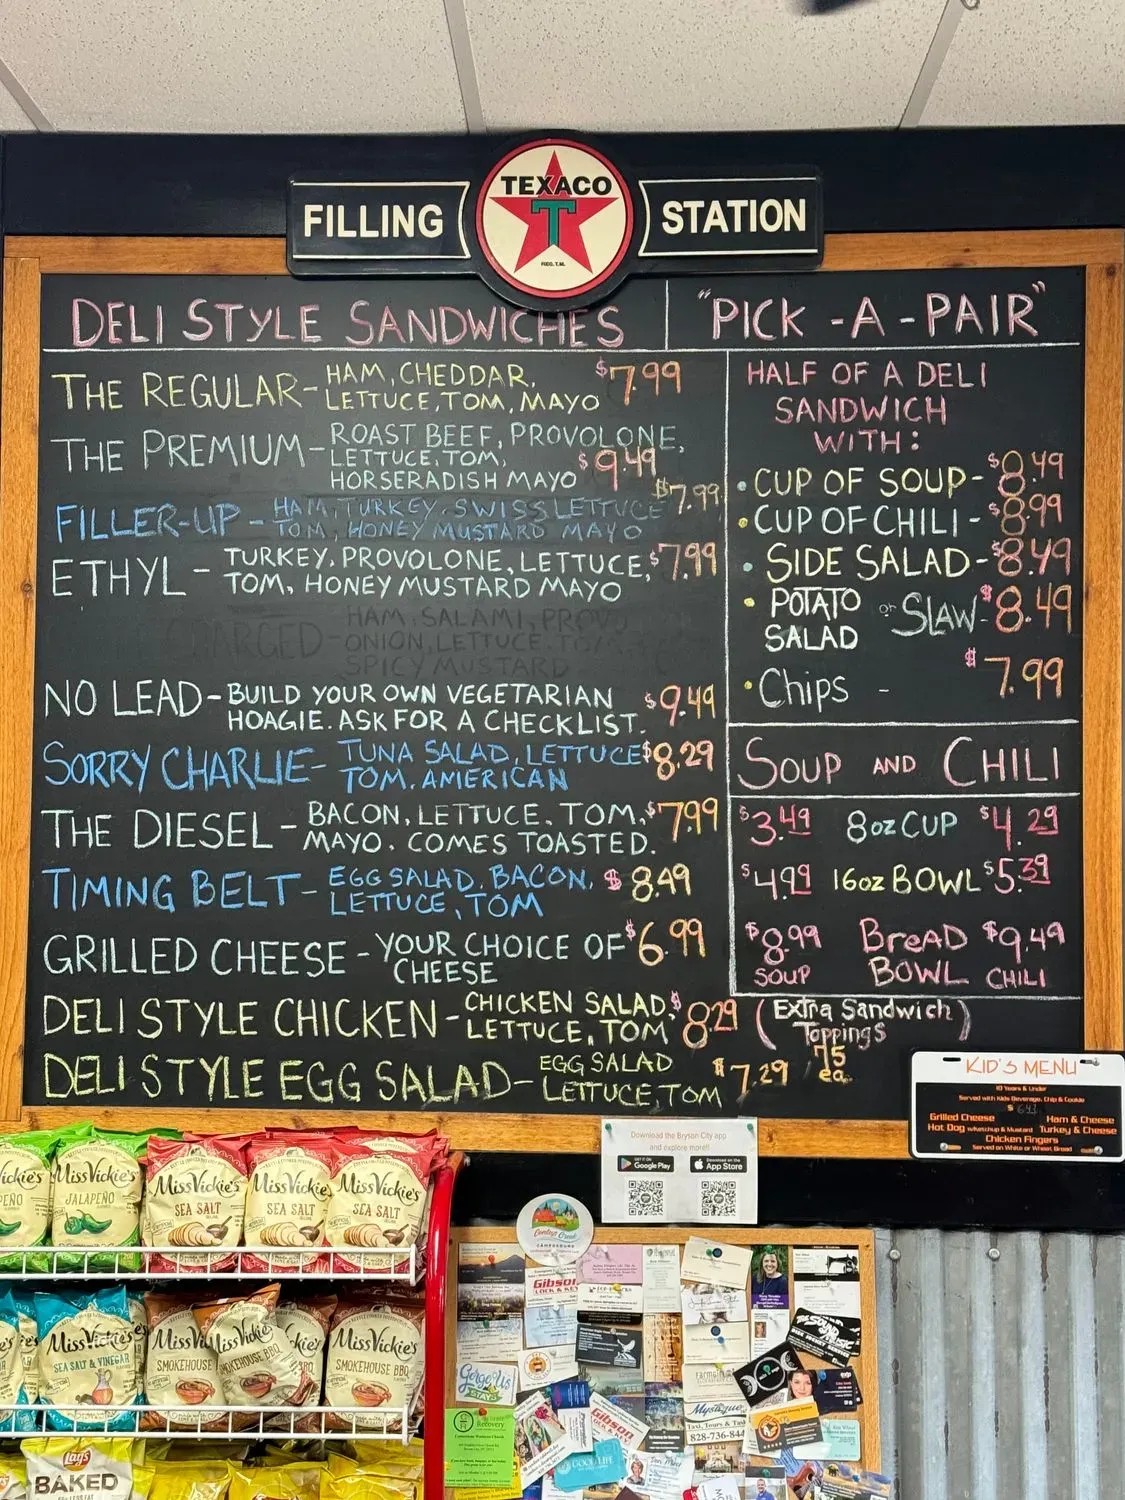 FILLING
TEXACO
T
REG. T.M.
STATION
DELI STYLE SANDWICHES
THE REGULAR - HAM, CHEDDAR, $7.99
LETTUCE, TOM, MAYO
THE PREMIUM - ROAST BEEF, PROVOLONE,
LETTUCE, TOM, $9.49
HORSERADISH MAYO
FILLER-UP - HAM, TURKEY, SWISS LETTUCE $7.99
TOM, HONEY MUSTARD MAYO
ETHYL - TURKEY, PROVOLONE, LETTUCE, $7.99
TOM, HONEY MUSTARD MAYO
HAM, SALAMI, PROVO
CHARGED - ONION, LETTUCE, TOM,
SPICY MUSTARD
NO LEAD - BUILD YOUR OWN VEGETARIAN $9.49
HOAGIE. ASK FOR A CHECKLIST.
SORRY CHARLIE - TUNA SALAD, LETTUCE $8.29
TOM, AMERICAN
THE DIESEL - BACON, LETTUCE, TOM, $7.99
MAYO. COMES TOASTED.
TIMING BELT - EGG SALAD, BACON, $8.49
LETTUCE, TOM
GRILLED CHEESE - YOUR CHOICE OF $6.99
CHEESE
DELI STYLE CHICKEN - CHICKEN SALAD, $8.29
LETTUCE, TOM
DELI STYLE EGG SALAD - EGG SALAD $7.29
LETTUCE, TOM
(Extra Sandwich
Toppings)
.75
ea.
"PICK-A-PAIR"
HALF OF A DELI
SANDWICH
WITH:
• CUP OF SOUP - $8.49
• CUP OF CHILI - $8.99
• SIDE SALAD - $8.49
• POTATO or SLAW - $8.49
SALAD
• Chips - $7.99
SOUP AND CHILI
$3.49 8oz CUP $4.29
$4.99 16oz BOWL $5.39
$8.99 BreAD $9.49
SOUP BOWL CHILI
KID'S MENU
10 Years & Under
Served with Kids Beverage, Chip & Cookie
Grilled Cheese Ham & Cheese
Hot Dog w/Ketchup & Mustard Turkey & Cheese
Chicken Fingers
Served on White or Wheat Bread
Download the Bryson City app
and explore more!
GET IT ON
Google Play
Download on the
App Store
Miss Vickie's
JALAPEÑO
Miss Vickie's
SEA SALT
Miss Vickie's
SEA SALT
Miss Vickie's
SEA SALT
Miss Vickie's
SEA SALT & VINEGAR
Miss Vickie's
SMOKEHOUSE BBQ
Miss Vickie's
SMOKEHOUSE BBQ
Miss Vickie's
SMOKEHOUSE BBQ
Lay's
BAKED
Gibson
LOCK & KEY
Gibson
GOOD LIFE
Recovery
Taxi, Tours &
828-736-844